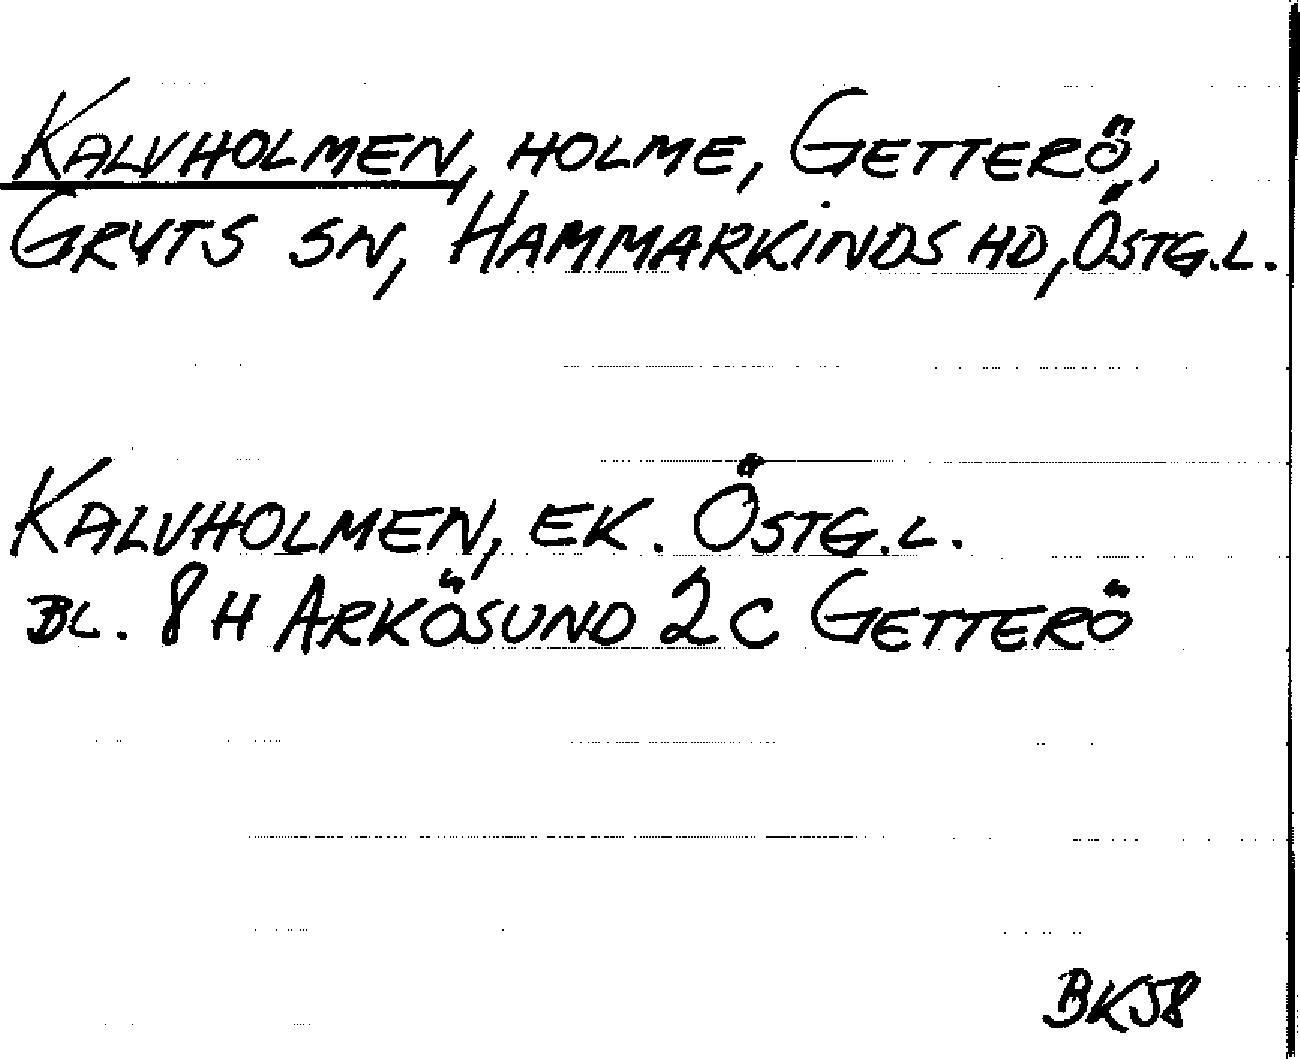 KALVHOLMEN, HOLME, GETTERÖ,
GRYTS SN, HAMMARKINDS HD, ÖSTG.L.
KALVHOLMEN, EK. ÖSTG.L.
BL. 8H ARKÖSUND 2C GETTERÖ
BK58